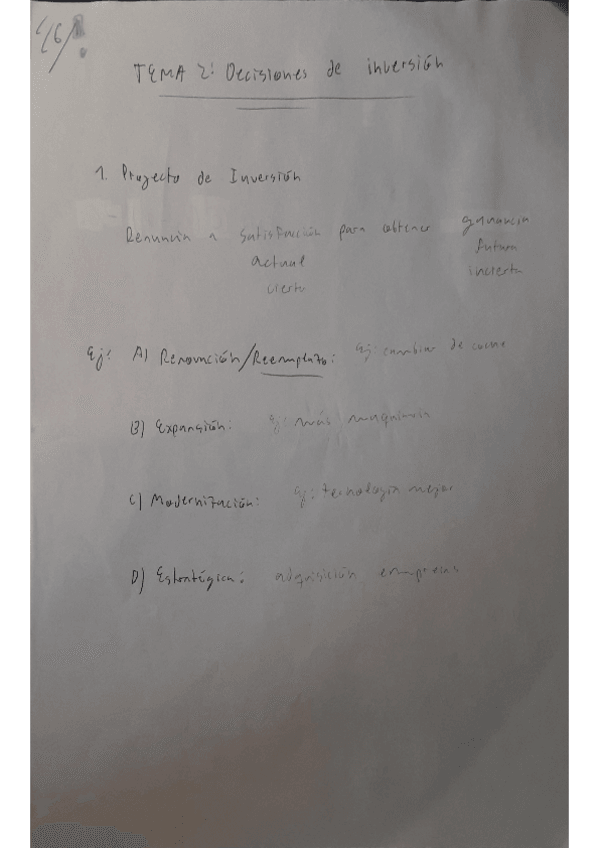 TEMA 2: Decisiones de inversión
1. Proyecto de Inversión
Renuncia a satisfacción para obtener ganancia
actual futura
cierta incierta
Ej: A) Renovación/Reemplazo: Ej: cambiar de coche
B) Expansión: Ej: más maquinaria
C) Modernización: Ej: tecnología mejor
D) Estratégica: adquisición empresas